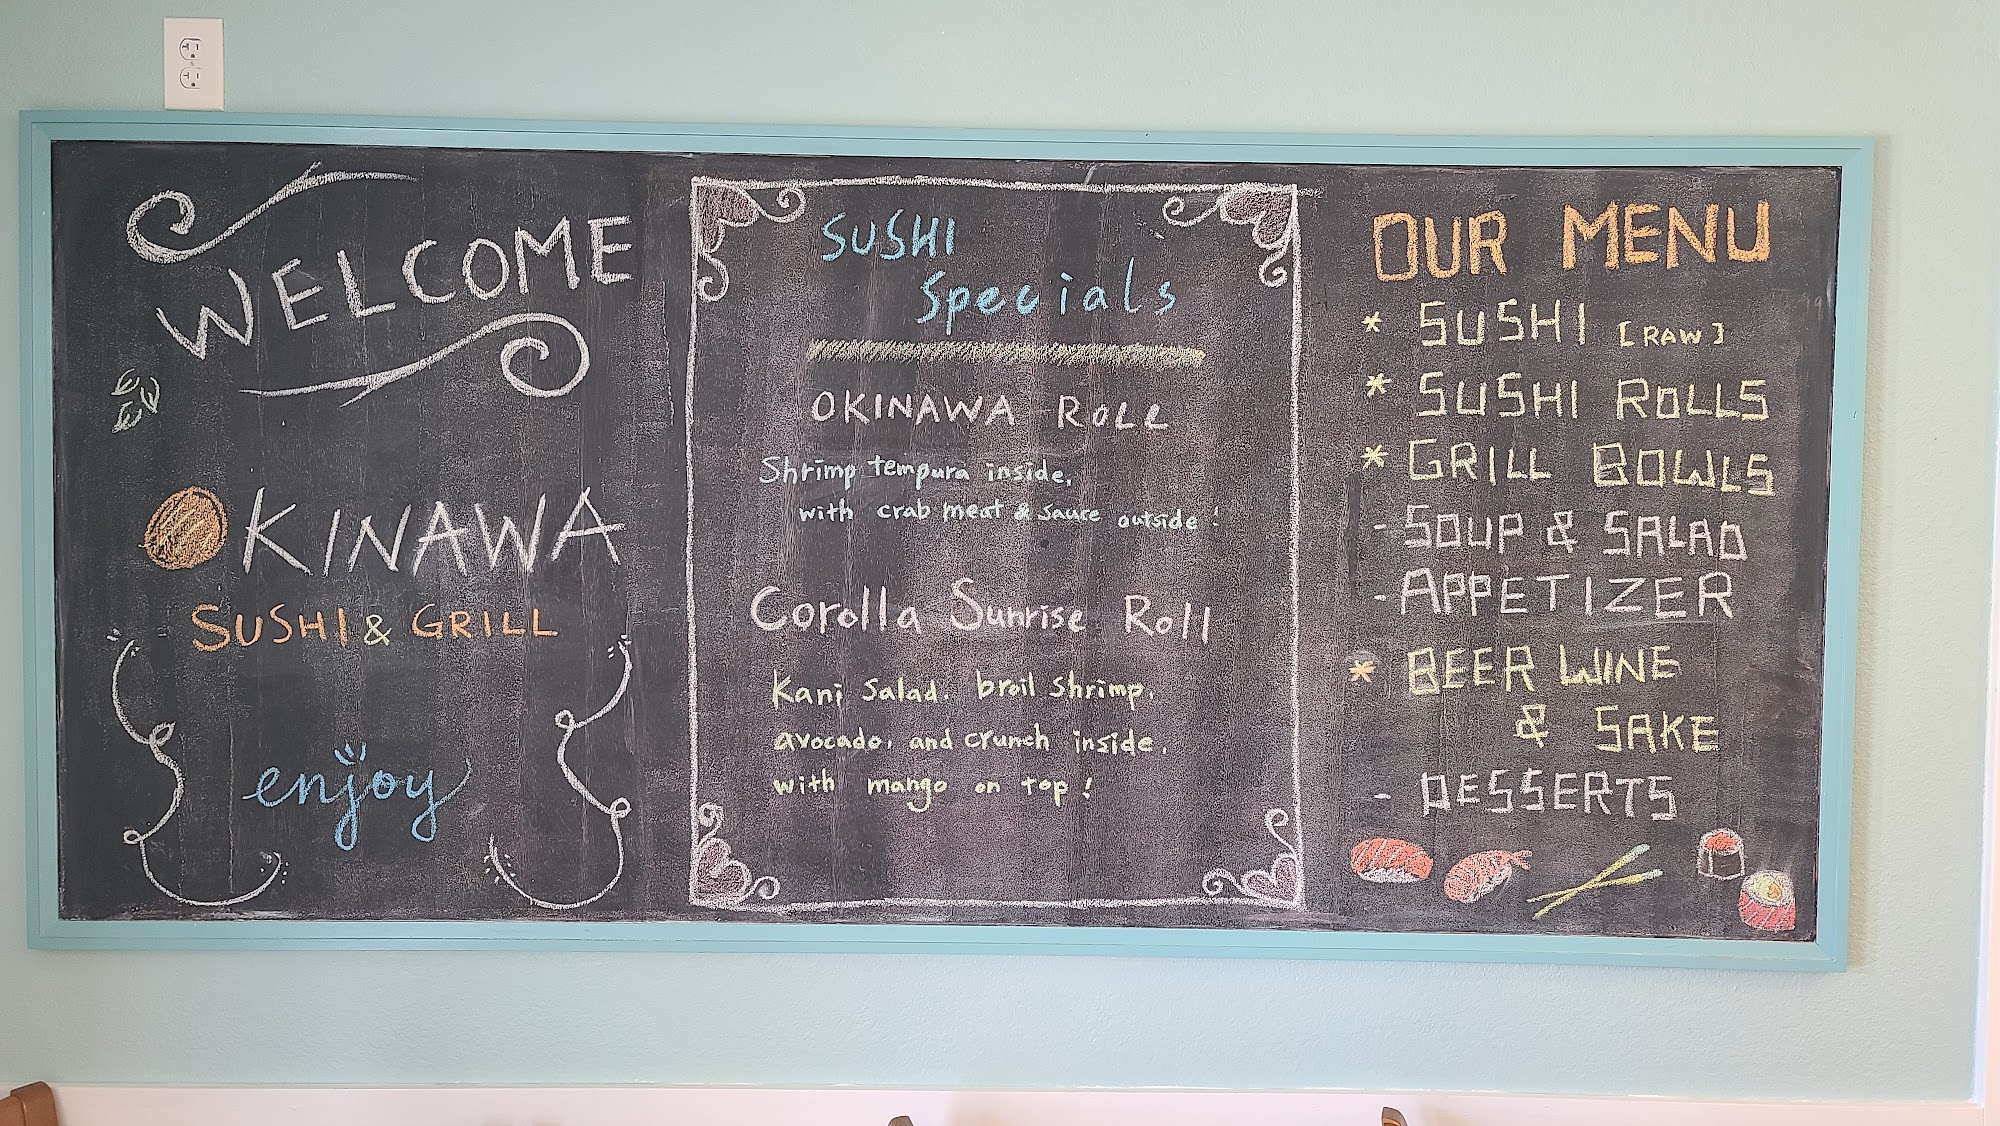 WELCOME
OKINAWA
SUSHI & GRILL
enjoy
SUSHI
Specials
OKINAWA ROLL
Shrimp tempura inside,
with crab meat & sauce outside!
Corolla Sunrise Roll
Kani Salad, broil shrimp,
avocado, and crunch inside,
with mango on top!
OUR MENU
* SUSHI [RAW]
* SUSHI ROLLS
* GRILL BOWLS
- SOUP & SALAD
- APPETIZER
* BEER WINE
& SAKE
- DESSERTS